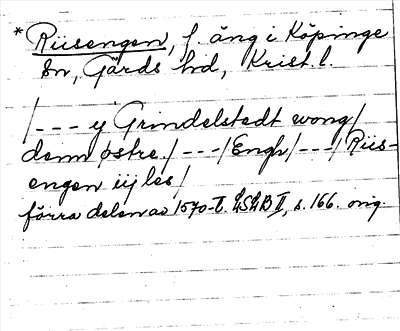 * Riisengen, f. äng i Köpinge
sn, Gärds hd, Krist. l.
/--- y Grindelstedt wong/
denn østre./ ---/Engh/---/Riis-
engen iij les/
förra delen av 1570-t. LSLB II, s. 166. orig.